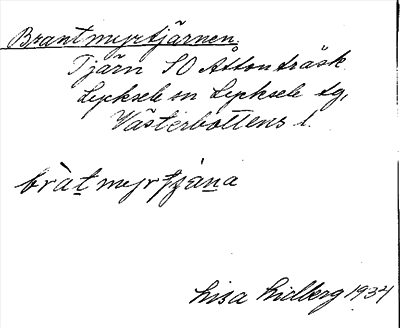 Brantmyrtjärnen.
Tjärn SO Åttonträsk
Lycksele sn Lycksele tg,
Västerbottens l.
bràt myrtjàna
Lisa Lidberg 1934